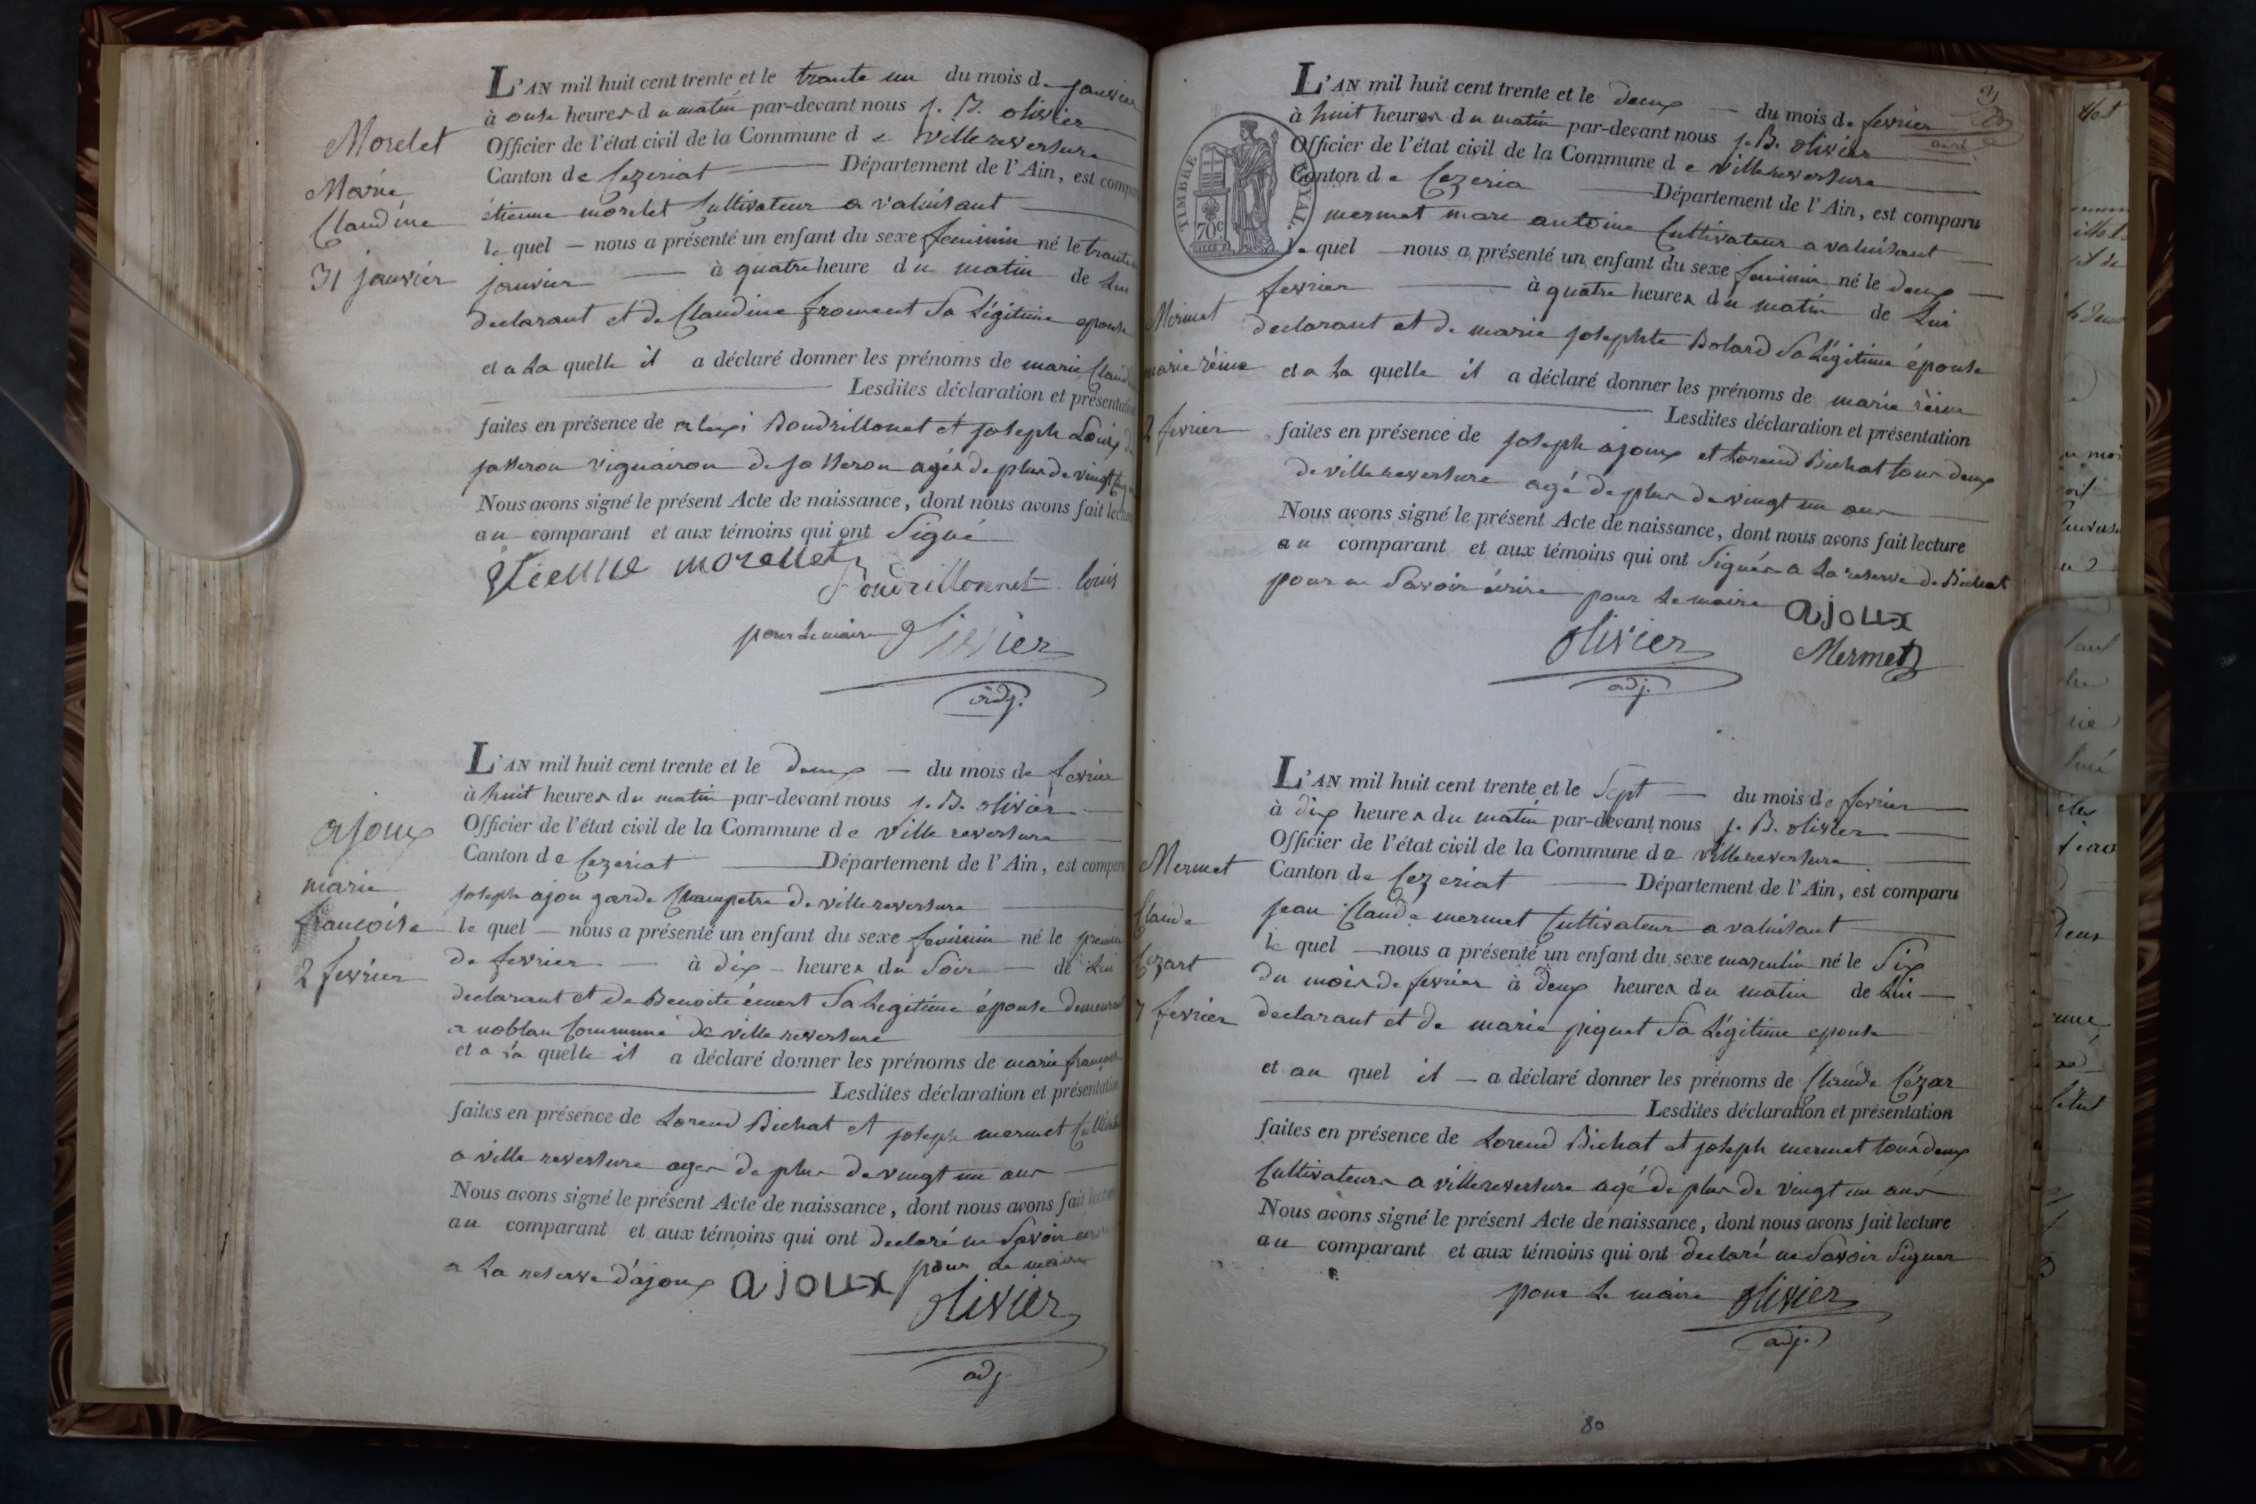 Morelet
Marie
Claudine
31 janvier
L'AN mil huit cent trente et le trante un du mois de janvier
à onse heures du matin par-devant nous j. B. olivier
Officier de l'état civil de la Commune de villereversure
Canton de Cezeriat Département de l'Ain, est compa
étienne morelet Cultivateur a valuisant
le quel nous a présenté un enfant du sexe feminin né le trante
janvier à quatre heure du matin de Lui
declarant et de Claudine froment Sa Légitime epouse
et a La quelle il a déclaré donner les prénoms de marie Claud
Lesdites déclaration et présentation
faites en présence de alexi Boudrillonet et joseph Louis
jasseron vignairon de jasseron agés de plus de vingt
Nous avons signé le présent Acte de naissance, dont nous avons fait lecture
au comparant et aux témoins qui ont Signé
Etienne morellet
Boudrillonnet louis
pour Le maire Olivier
adj.
ajoux
marie
francoise
2 fevrier
L'AN mil huit cent trente et le deux du mois de fevrier
à huit heures du matin par-devant nous j. B. olivier
Officier de l'état civil de la Commune de ville reversure
Canton de Cezeriat Département de l'Ain, est compar
joseph ajou garde Champetre de ville reversure
le quel nous a présenté un enfant du sexe feminin né le premier
de fevrier à dix heures du Soir de Lui
declarant et de Benoite émert Sa Legitime épouse demeurant
a noblan Commune de ville reversure
et a La quelle il a déclaré donner les prénoms de marie francoise
Lesdites déclaration et présentation
faites en présence de Lorend Bichat et joseph mermet
a ville reversure agés de plus de vingt un ans
Nous avons signé le présent Acte de naissance, dont nous avons fait lecture
au comparant et aux témoins qui ont declaré ne Savoir
a La reserve d'ajoux ajoux pour Le maire
Olivier
adj
TIMBRE ROYAL.
70c
Mermet
marie rèine
2 fevrier
L'AN mil huit cent trente et le deux du mois de fevrier
à huit heures du matin par-devant nous j. B. olivier
Officier de l'état civil de la Commune de villereversure
Canton de Cezeria Département de l'Ain, est comparu
mermet marc antoine Cultivateur a valuisant
le quel nous a présenté un enfant du sexe feminin né le deux
fevrier à quatre heures du matin de Lui
declarant et de marie josephte Bolard Sa Légitime épouse
et a La quelle il a déclaré donner les prénoms de marie rèine
Lesdites déclaration et présentation
faites en présence de joseph ajoux et Lorend Bichat tous deux
de villereversure agé de plus de vingt un ans
Nous avons signé le présent Acte de naissance, dont nous avons fait lecture
au comparant et aux témoins qui ont Signés a La reserve de Bichat
pour ne Savoir écrire pour Le maire ajoux
Olivier Mermet
adj.
Mermet
Claude
Cezart
7 fevrier
L'AN mil huit cent trente et le Sept du mois de fevrier
à dix heures du matin par-devant nous j. B. olivier
Officier de l'état civil de la Commune de villereversure
Canton de Cezeriat Département de l'Ain, est comparu
jean Claude mermet Cultivateur a valuisant
le quel nous a présenté un enfant du sexe masculin né le Six
du mois de fevrier à deux heures du matin de Lui
declarant et de marie piquet Sa Légitime epouse
et au quel il a déclaré donner les prénoms de Claude Cézar
Lesdites déclaration et présentation
faites en présence de Lorend Bichat et joseph mermet tous deux
Cultivateurs a villereversure agé de plus de vingt un ans
Nous avons signé le présent Acte de naissance, dont nous avons fait lecture
au comparant et aux témoins qui ont declaré ne Savoir Signer
pour Le maire Olivier
adj.
80